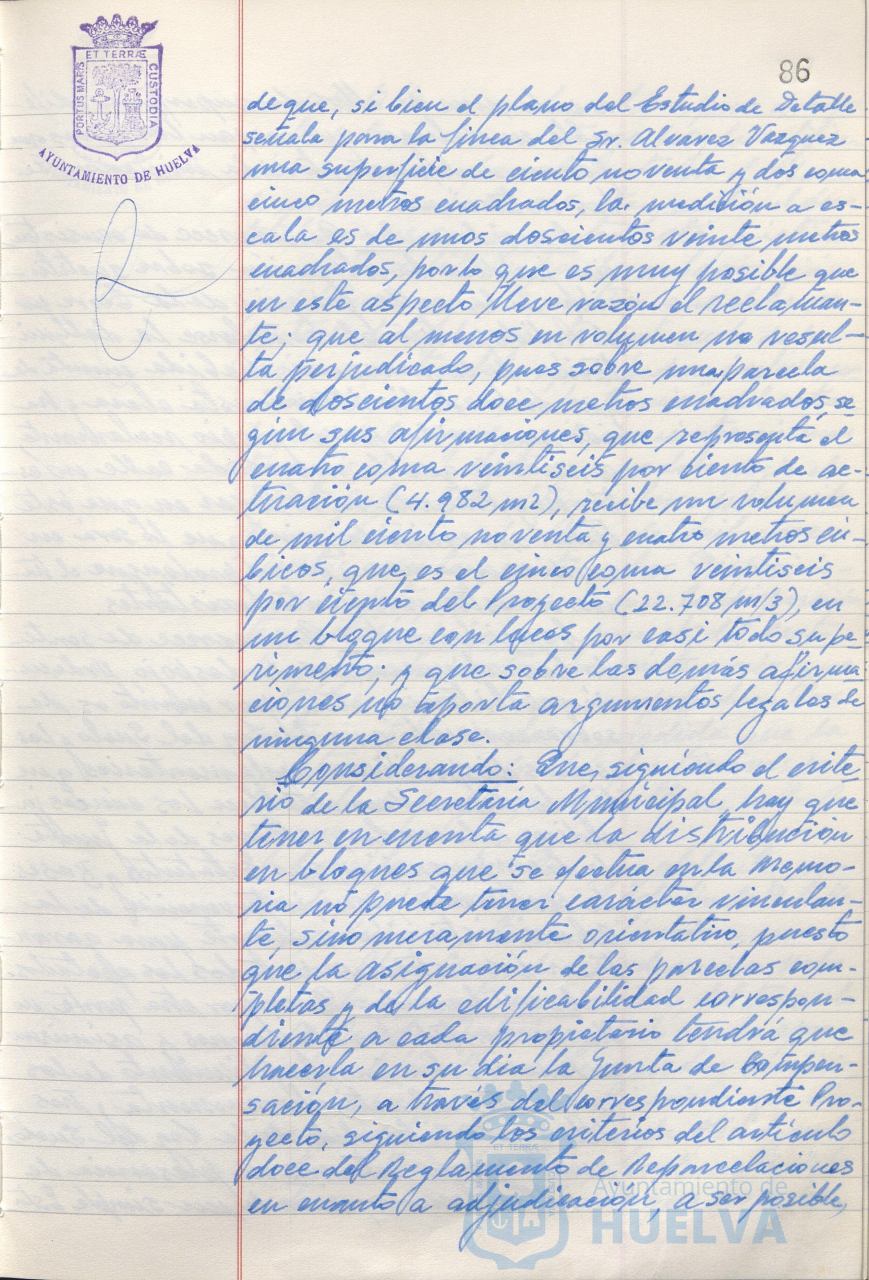 ET TERRÆ
PORTUS MARIS
CUSTODIA
AYUNTAMIENTO DE HUELVA
86
de que, si bien el plano del Estudio de Detalle
señala para la finca del Sr. Alvarez Vazquez
una superficie de ciento noventa y dos coma
cinco metros cuadrados, la medición a es-
cala es de unos doscientos veinte metros
cuadrados, por lo que es muy posible que
en este aspecto lleve razón el reclaman-
te; que al menos en volumen no resul-
ta perjudicado, pues sobre una parcela
de doscientos doce metros cuadrados, se-
gún sus afirmaciones, que representa el
cuatro coma veintiseis por ciento de ac-
tuación (4.982 m2), recibe un volumen
de mil ciento noventa y cuatro metros cú-
bicos, que es el cinco coma veintiseis
por ciento del Proyecto (22.708 m/3), en
un bloque con luces por casi todo su pe-
rimetro; y que sobre las demás afirma-
ciones no aporta argumentos legales de
ninguna clase.
Considerando: Que, siguiendo el crite-
rio de la Secretaría Municipal, hay que
tener en cuenta que la distribución
en bloques que se efectua en la Memo-
ria no puede tener carácter vinculan-
te, sino meramente orientativo, puesto
que la asignación de las parcelas com-
pletas y de la edificabilidad correspon-
diente a cada propietario tendrá que
hacerla en su día la Junta de Compen-
sación, a través del correspondiente Pro-
yecto, siguiendo los criterios del artículo
doce del Reglamento de Reparcelaciones
en cuanto a adjudicación, a ser posible,
Ayuntamiento de
HUELVA